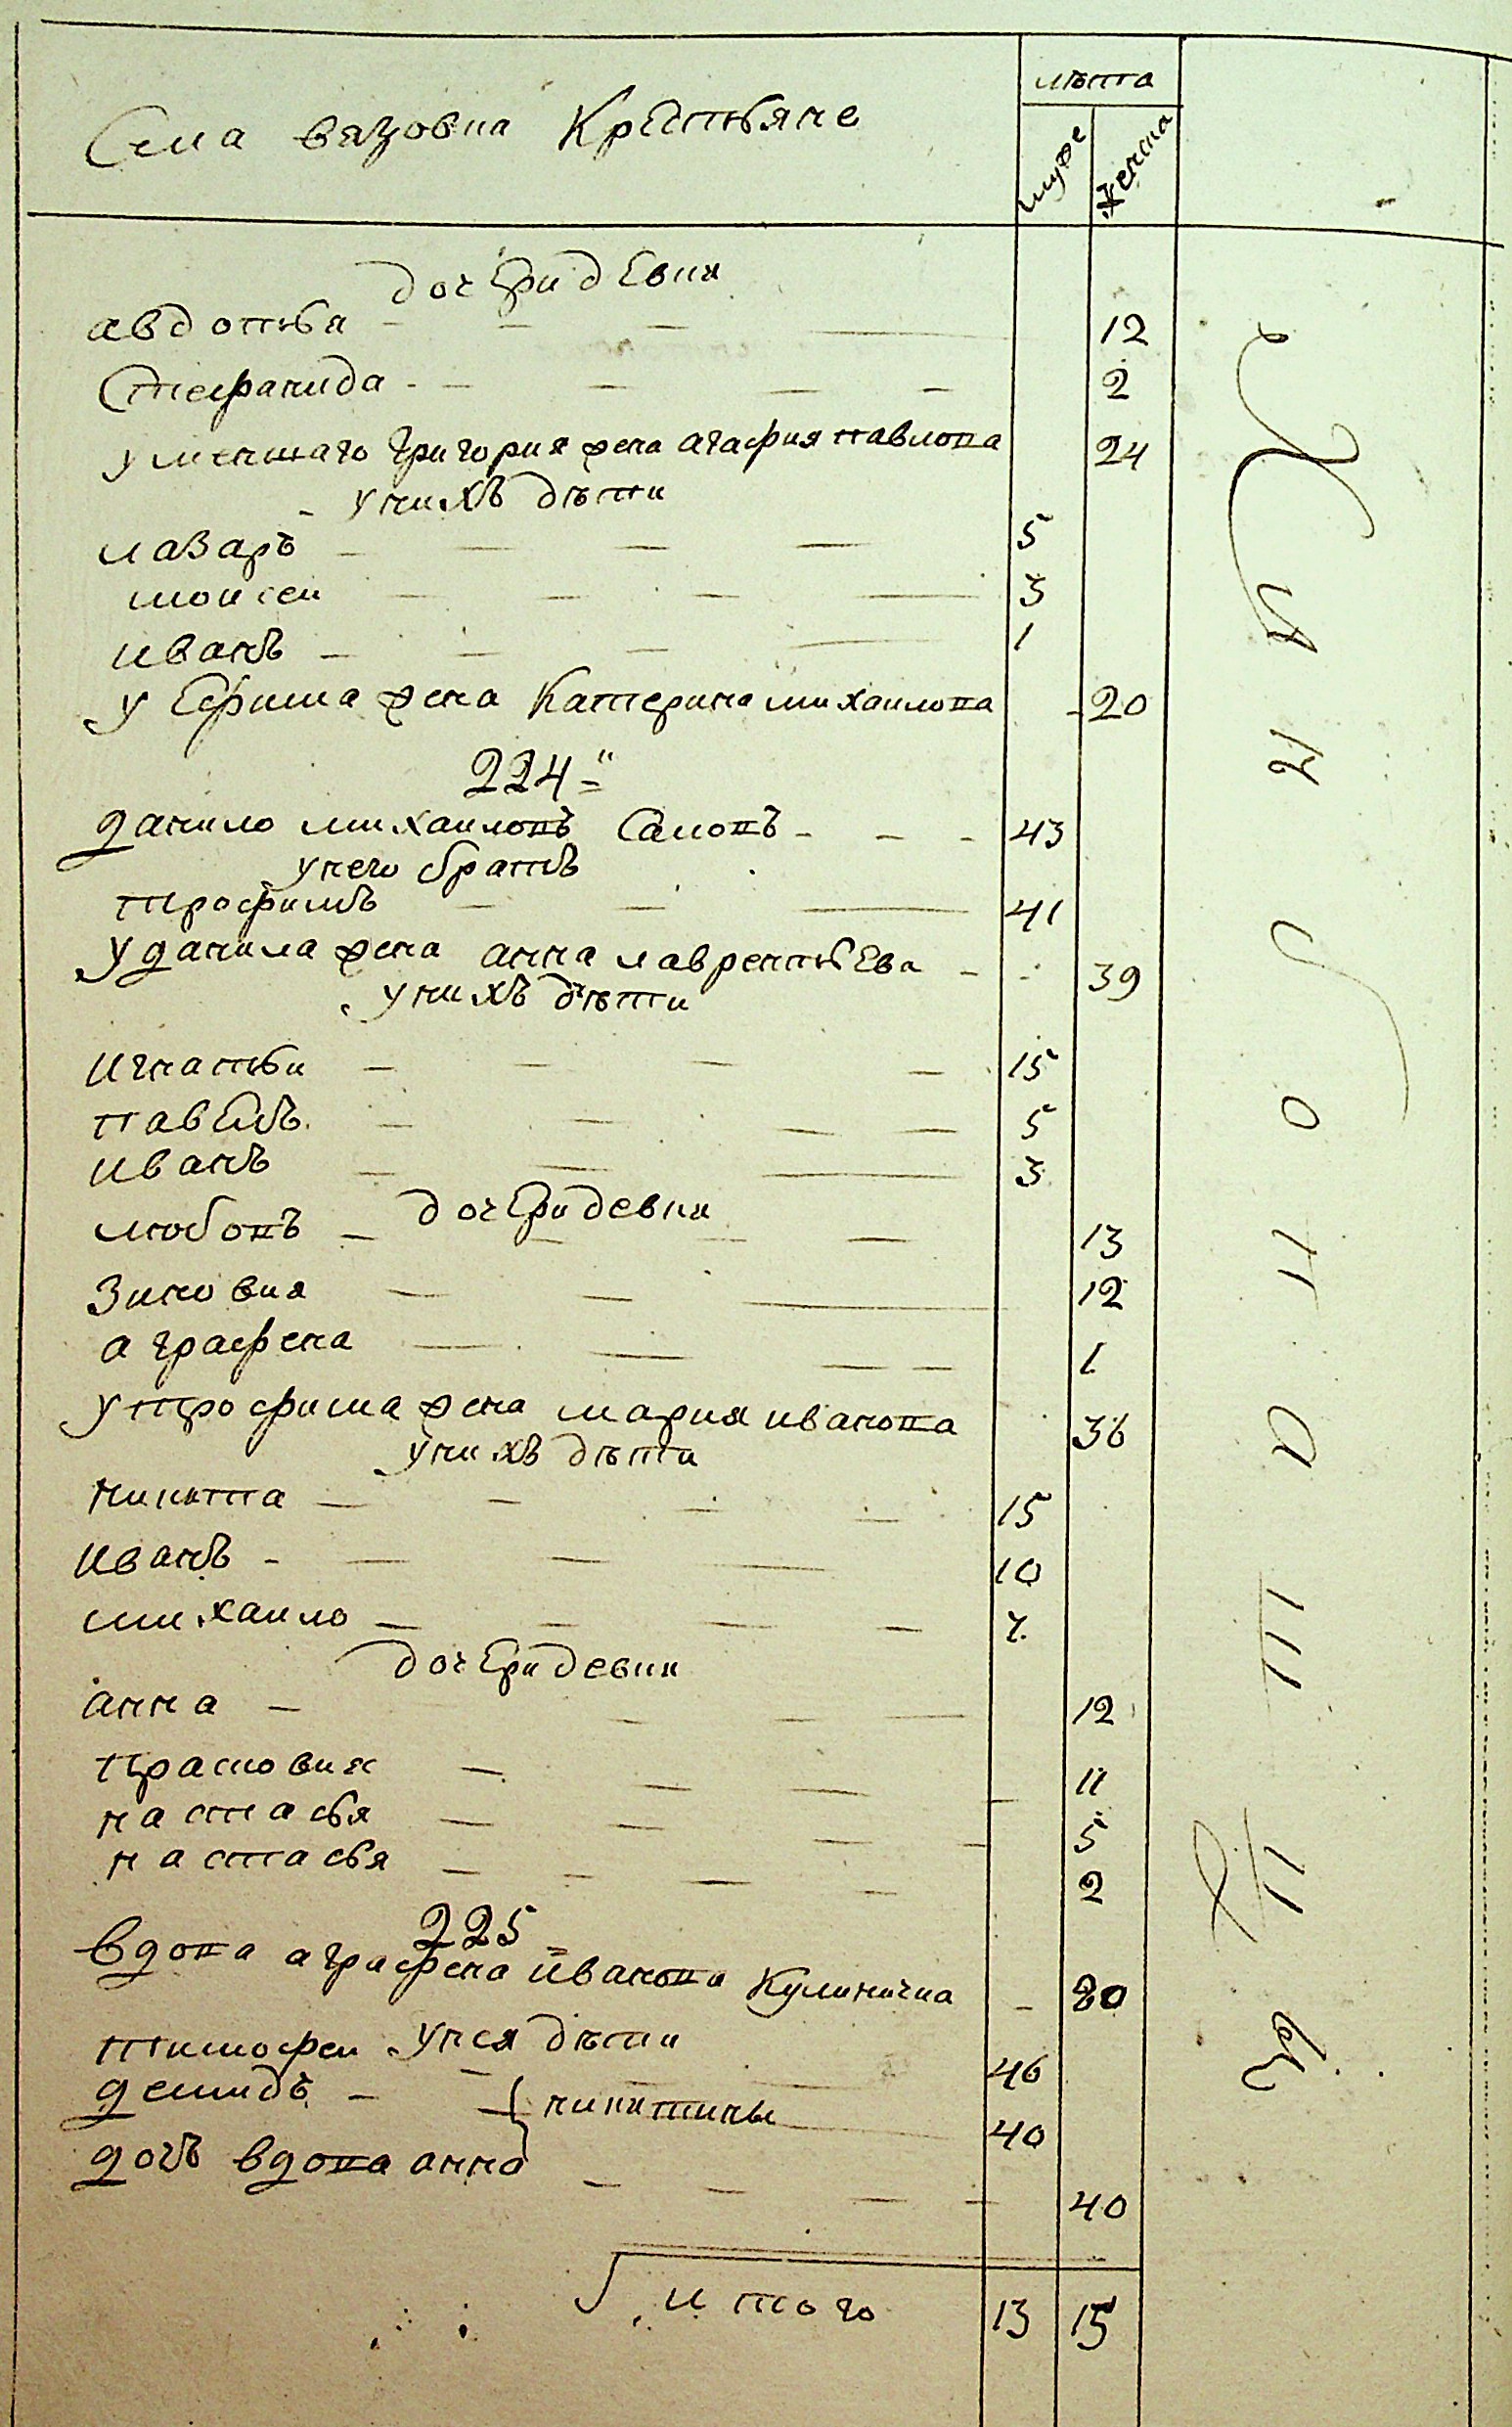 Села вязовка Крестьяне
лѣта
муже
женска
дочери девки
авдотья 12
Стефанида 2
у меншаго григория жена агафия павлова 24
у них дѣти
лазарь 5
моисеи 3
иванъ 1
у Ефима жена Катерина михаилова 20
224
данило михаиловъ 43
у него братъ
трофимъ 41
у данила жена анна лаврентьева 39
у нихъ дѣти
игнатьи 15
павелъ 5
иванъ 3
дочери девки
любовь 13
зиновия 12
аграфена 1
у трофима жена мария иванова 36
у нихъ дѣти
никита 15
иванъ 10
михаило 7
дочери девки
анна 12
прасковия 11
настасья 5
настасья 2
225
вдова аграфена иванова 80
у нея дѣти
тимофеи 46
демидъ никитины 40
дочь вдова анна 40
итого 13 15